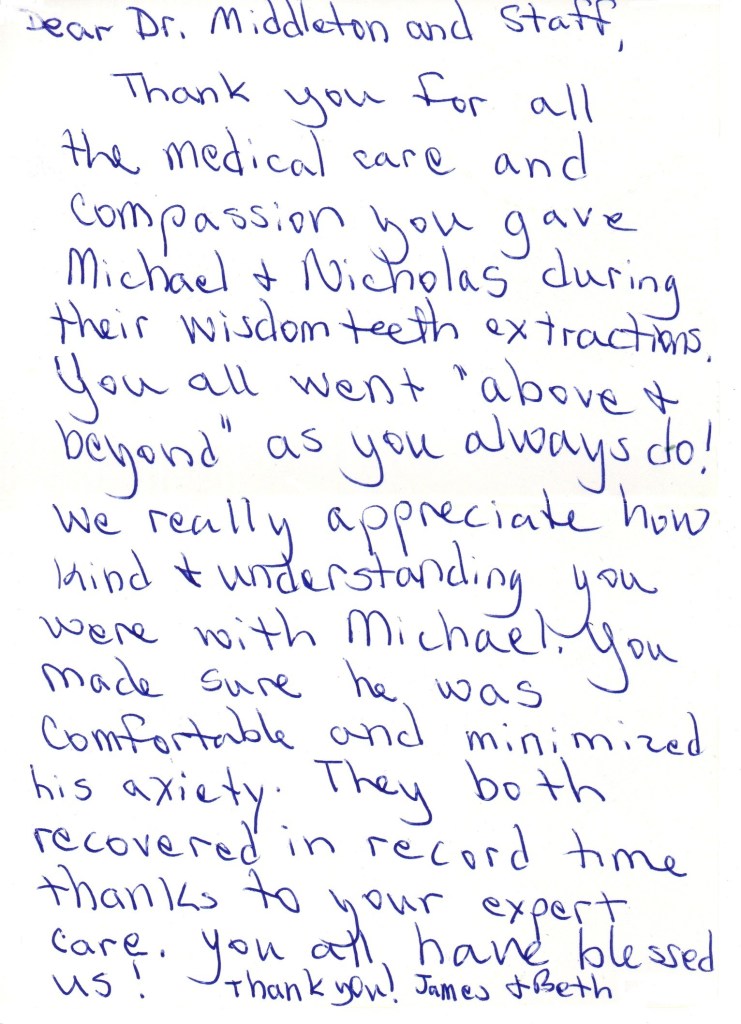 Dear Dr. Middleton and Staff,
Thank you for all
the medical care and
compassion you gave
Michael + Nicholas during
their wisdom teeth extractions.
You all went "above +
beyond" as you always do!
We really appreciate how
kind + understanding you
were with Michael. You
made sure he was
comfortable and minimized
his axiety. They both
recovered in record time
thanks to your expert
care. You all have blessed
us! Thank you! James + Beth